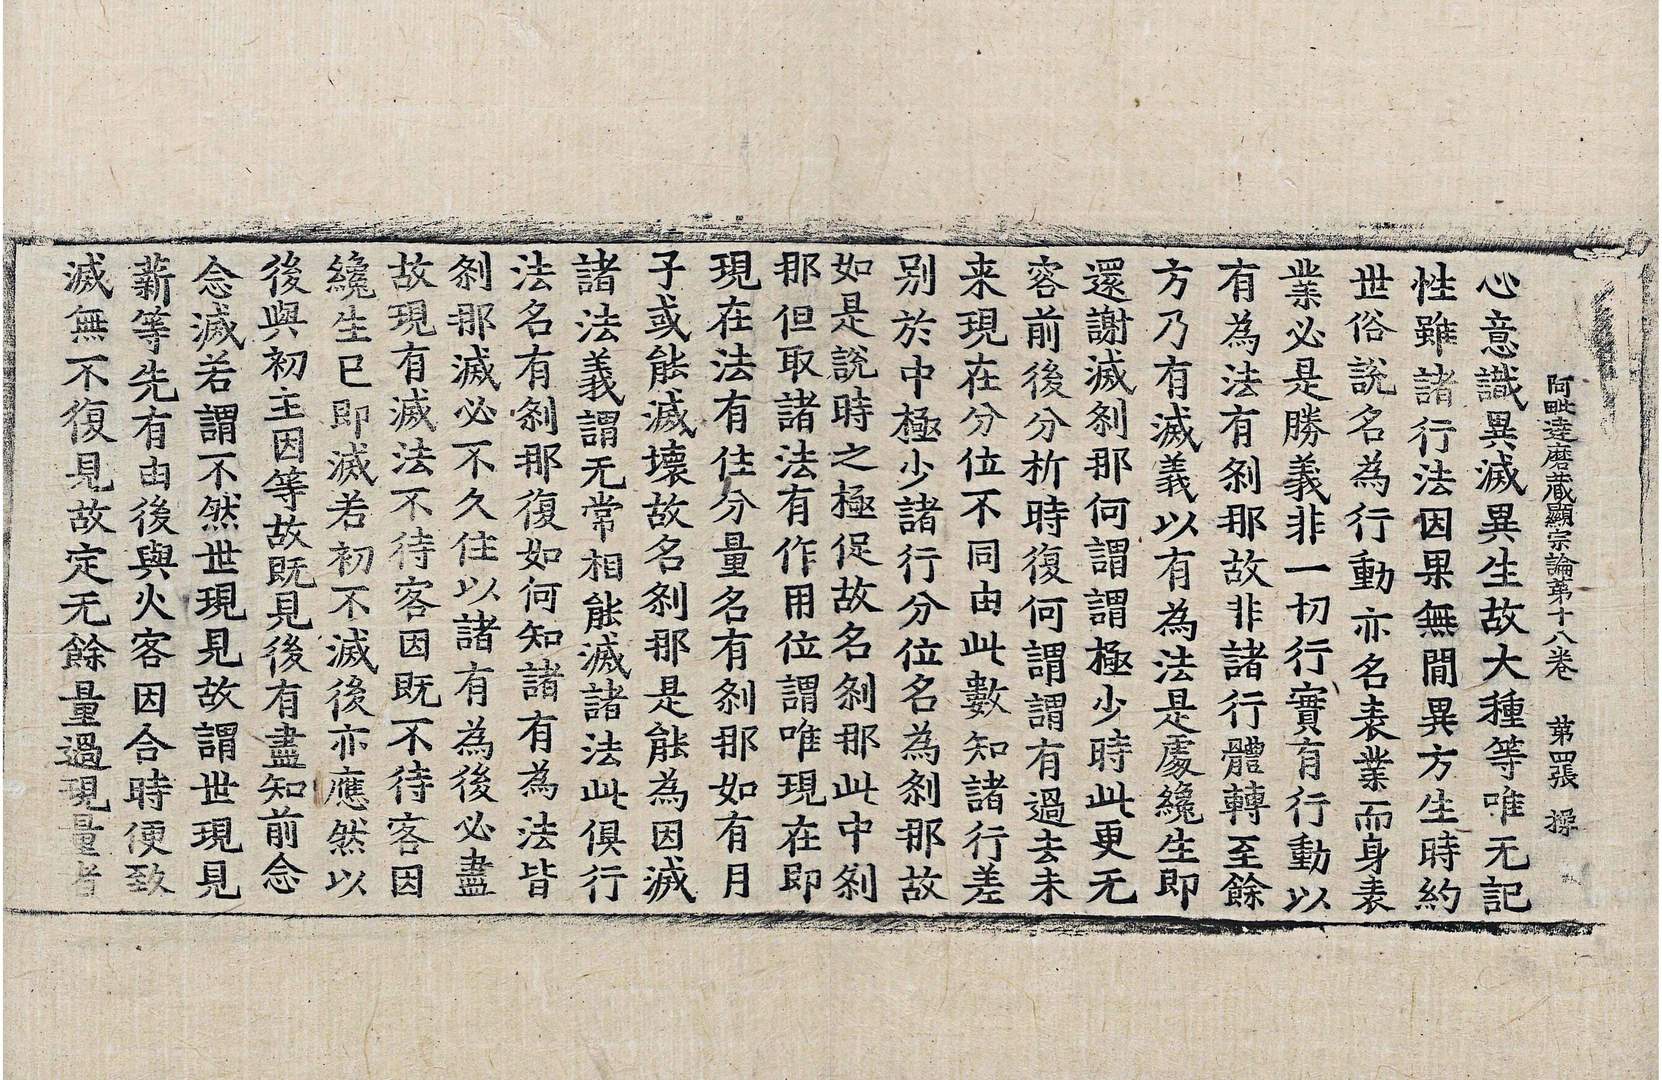 阿毗達磨藏顯宗論第十八卷　第四張　操
心意識異滅異生故大種等唯无記
性雖諸行法因果無閒異方生時約
世俗說名為行動亦名表業而身表
業必是勝義非一切行實有行動以
有為法有剎那故非諸行體轉至餘
方乃有滅義以有為法是處纔生即
還謝滅剎那何謂謂極少時此更无
容前後分析時復何謂謂有過去未
来現在分位不同由此數知諸行差
别於中極少諸行分位名為剎那故
如是說時之極促故名剎那此中剎
那但取諸法有作用位謂唯現在即
現在法有住分量名有剎那如有月
子或能滅壞故名剎那是能為因滅
諸法義謂无常相能滅諸法此俱行
法名有剎那復如何知諸有為法皆
剎那滅必不久住以諸有為後必盡
故現有滅法不待客因既不待客因
纔生已即滅若初不滅後亦應然以
後與初主因等故既見後有盡知前念
念滅若謂不然世現見故謂世現見
薪等先有由後與火客因合時便致
滅無不復見故定无餘量過現量者